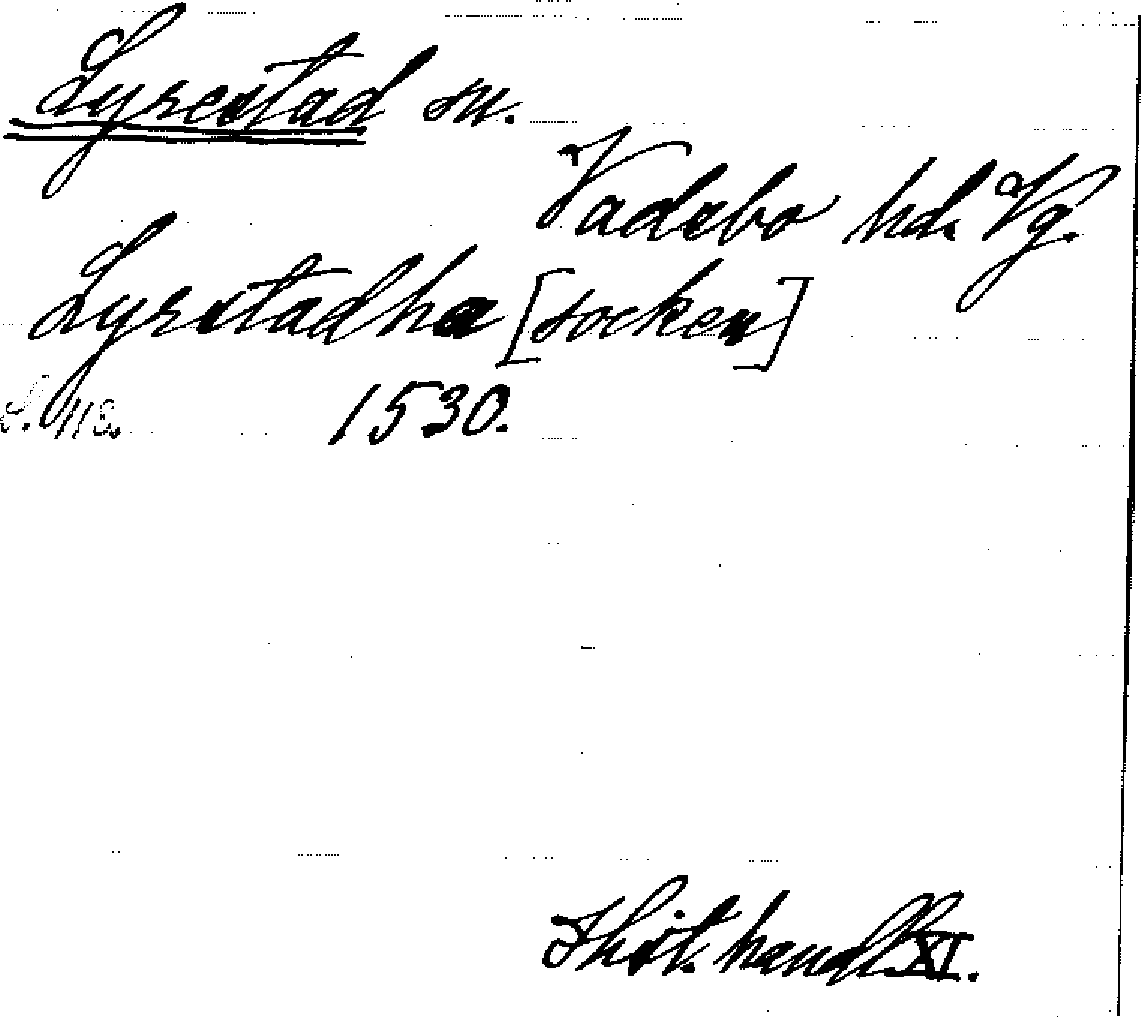 Lyrestad sn.
Vadsbo hd. Vg.
Lyrestadha [socken]
s. 113. 1530.
Hist. handl. XI.